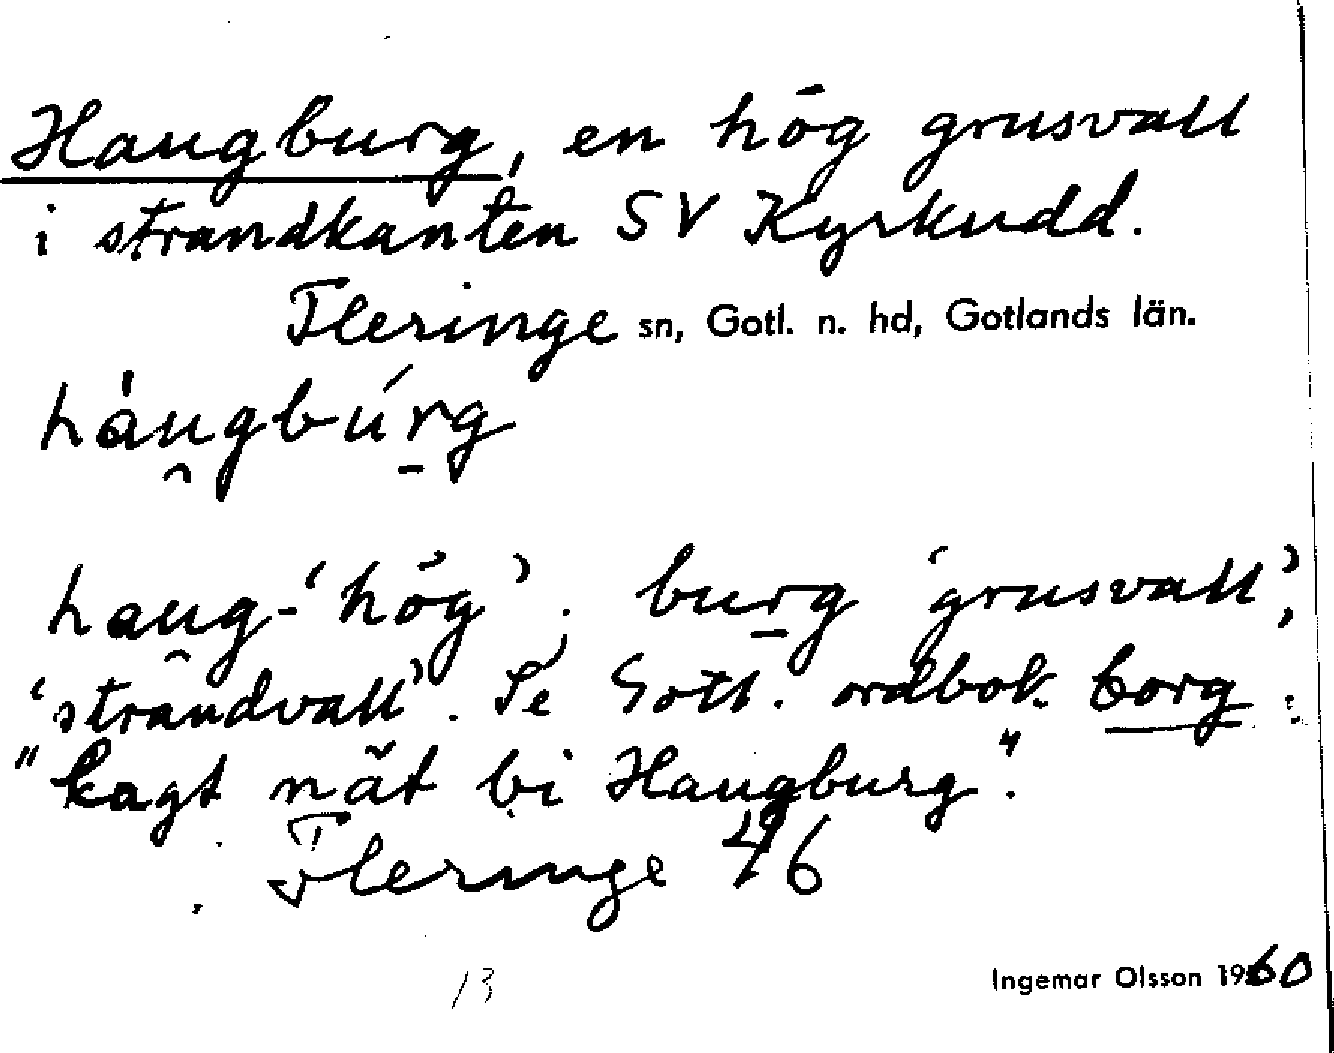 Haugburg, en hög grusvall
i strandkanten SV Kyrkudd.
Fleringe sn, Gotl. n. hd, Gotlands län.
hàu̯gbúr̠g
hau̯g- ‘hög’; bur̠g ‘grusvall’,
‘strandvall’. Se Gotl. ordbok borg:
"lagt nät bi Haugburg".
Fleringe 46
13
Ingemar Olsson 1960